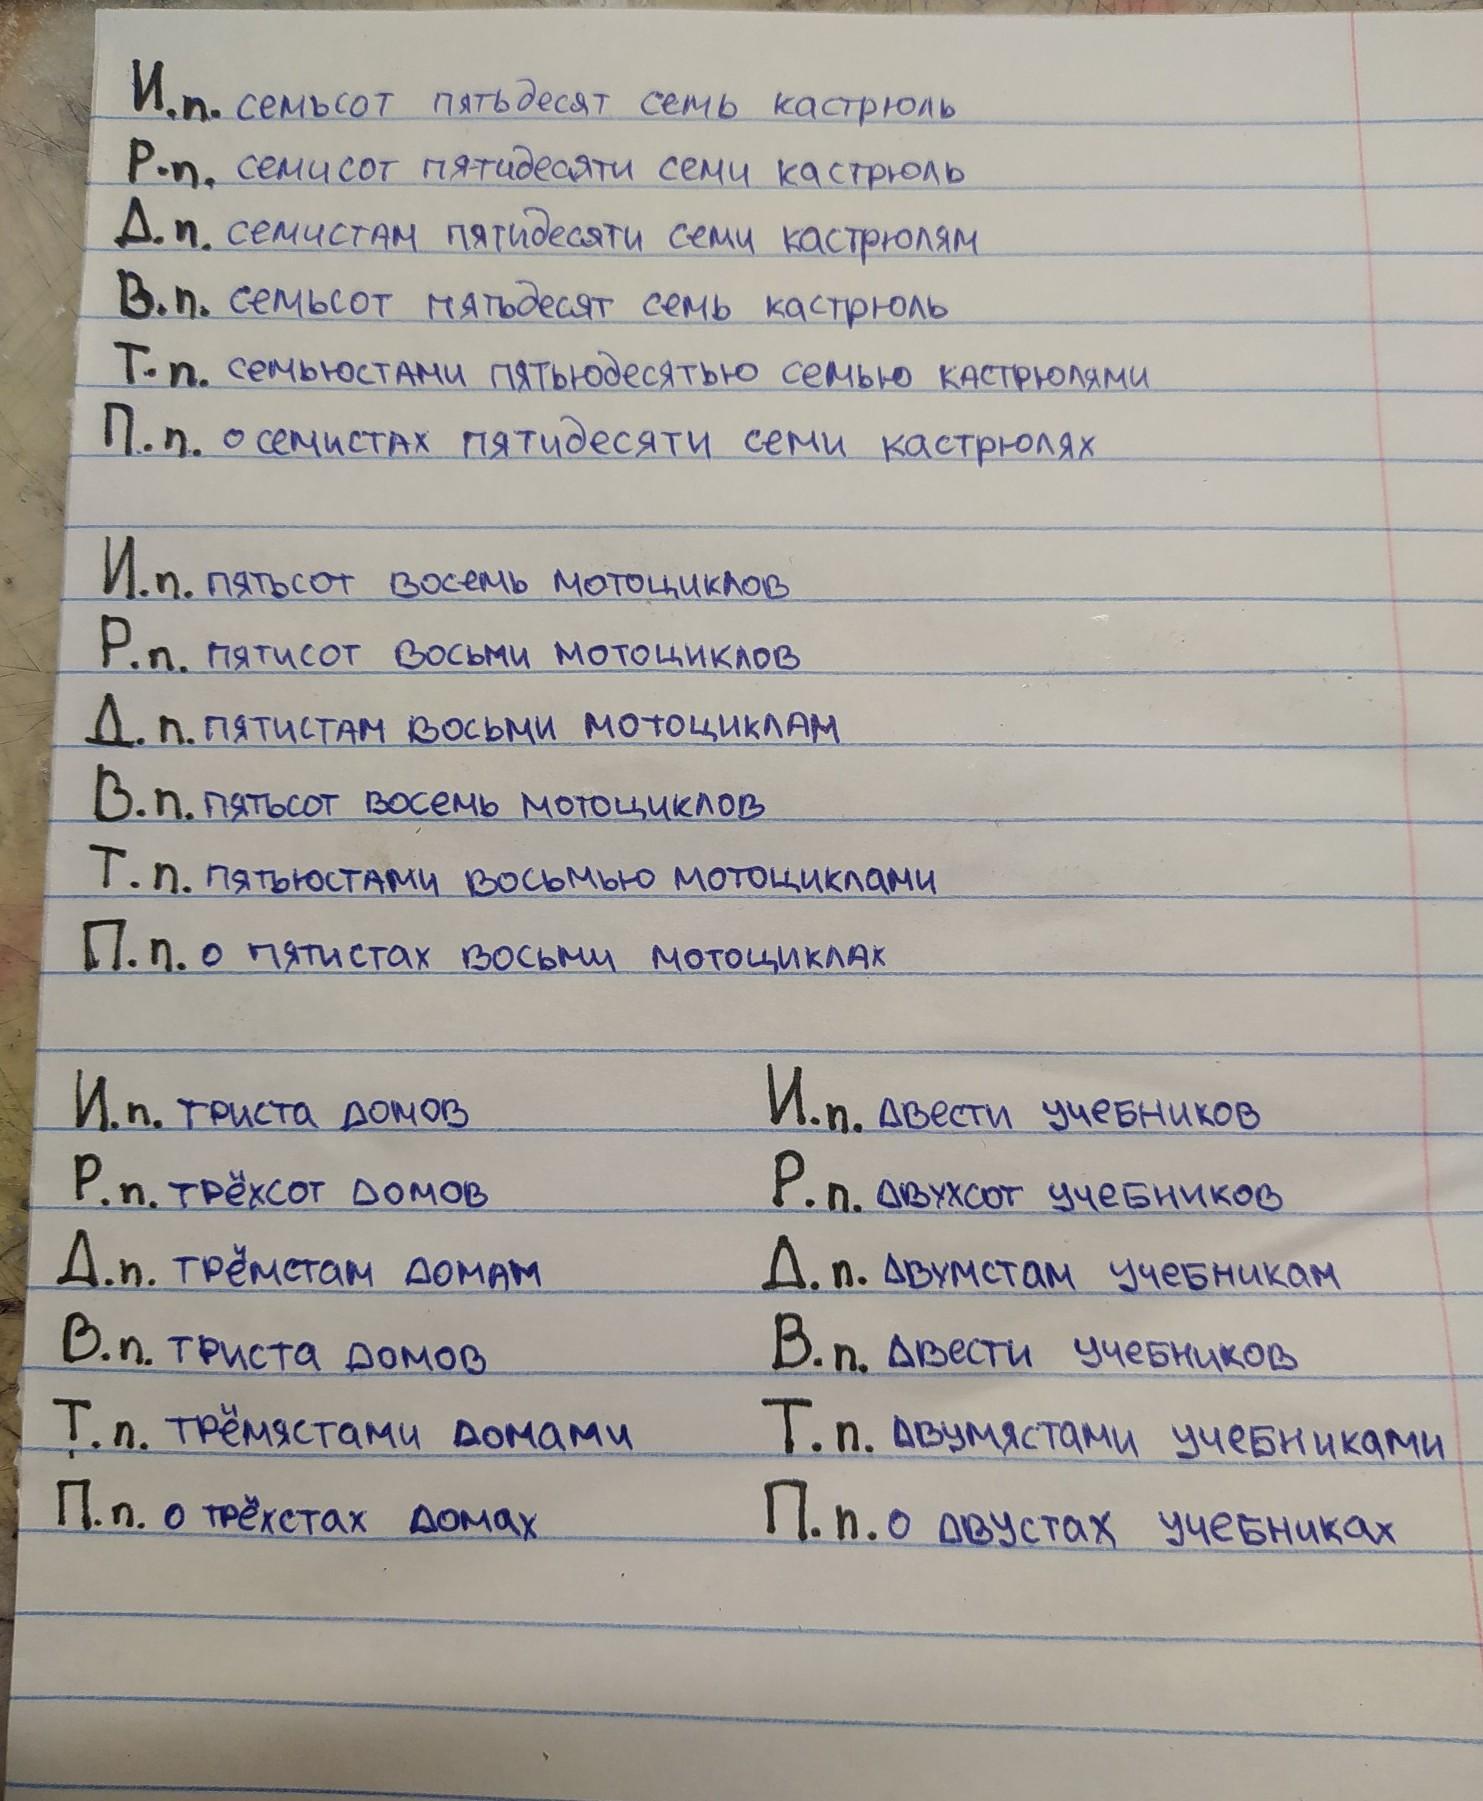 И.п. семьсот пятьдесят семь кастрюль
Р.п. семисот пятидесяти семи кастрюль
Д.п. семистам пятидесяти семи кастрюлям
В.п. семьсот пятьдесят семь кастрюль
Т.п. семьюстами пятьюдесятью семью кастрюлями
П.п. о семистах пятидесяти семи кастрюлях
И.п. пятьсот восемь мотоциклов
Р.п. пятисот восьми мотоциклов
Д.п. пятистам восьми мотоциклам
В.п. пятьсот восемь мотоциклов
Т.п. пятьюстами восьмью мотоциклами
П.п. о пятистах восьми мотоциклах
И.п. триста домов
Р.п. трёхсот домов
Д.п. трёмстам домам
В.п. триста домов
Т.п. трёмястами домами
П.п. о трёхстах домах
И.п. двести учебников
Р.п. двухсот учебников
Д.п. двумстам учебникам
В.п. двести учебников
Т.п. двумястами учебниками
П.п. о двустах учебниках